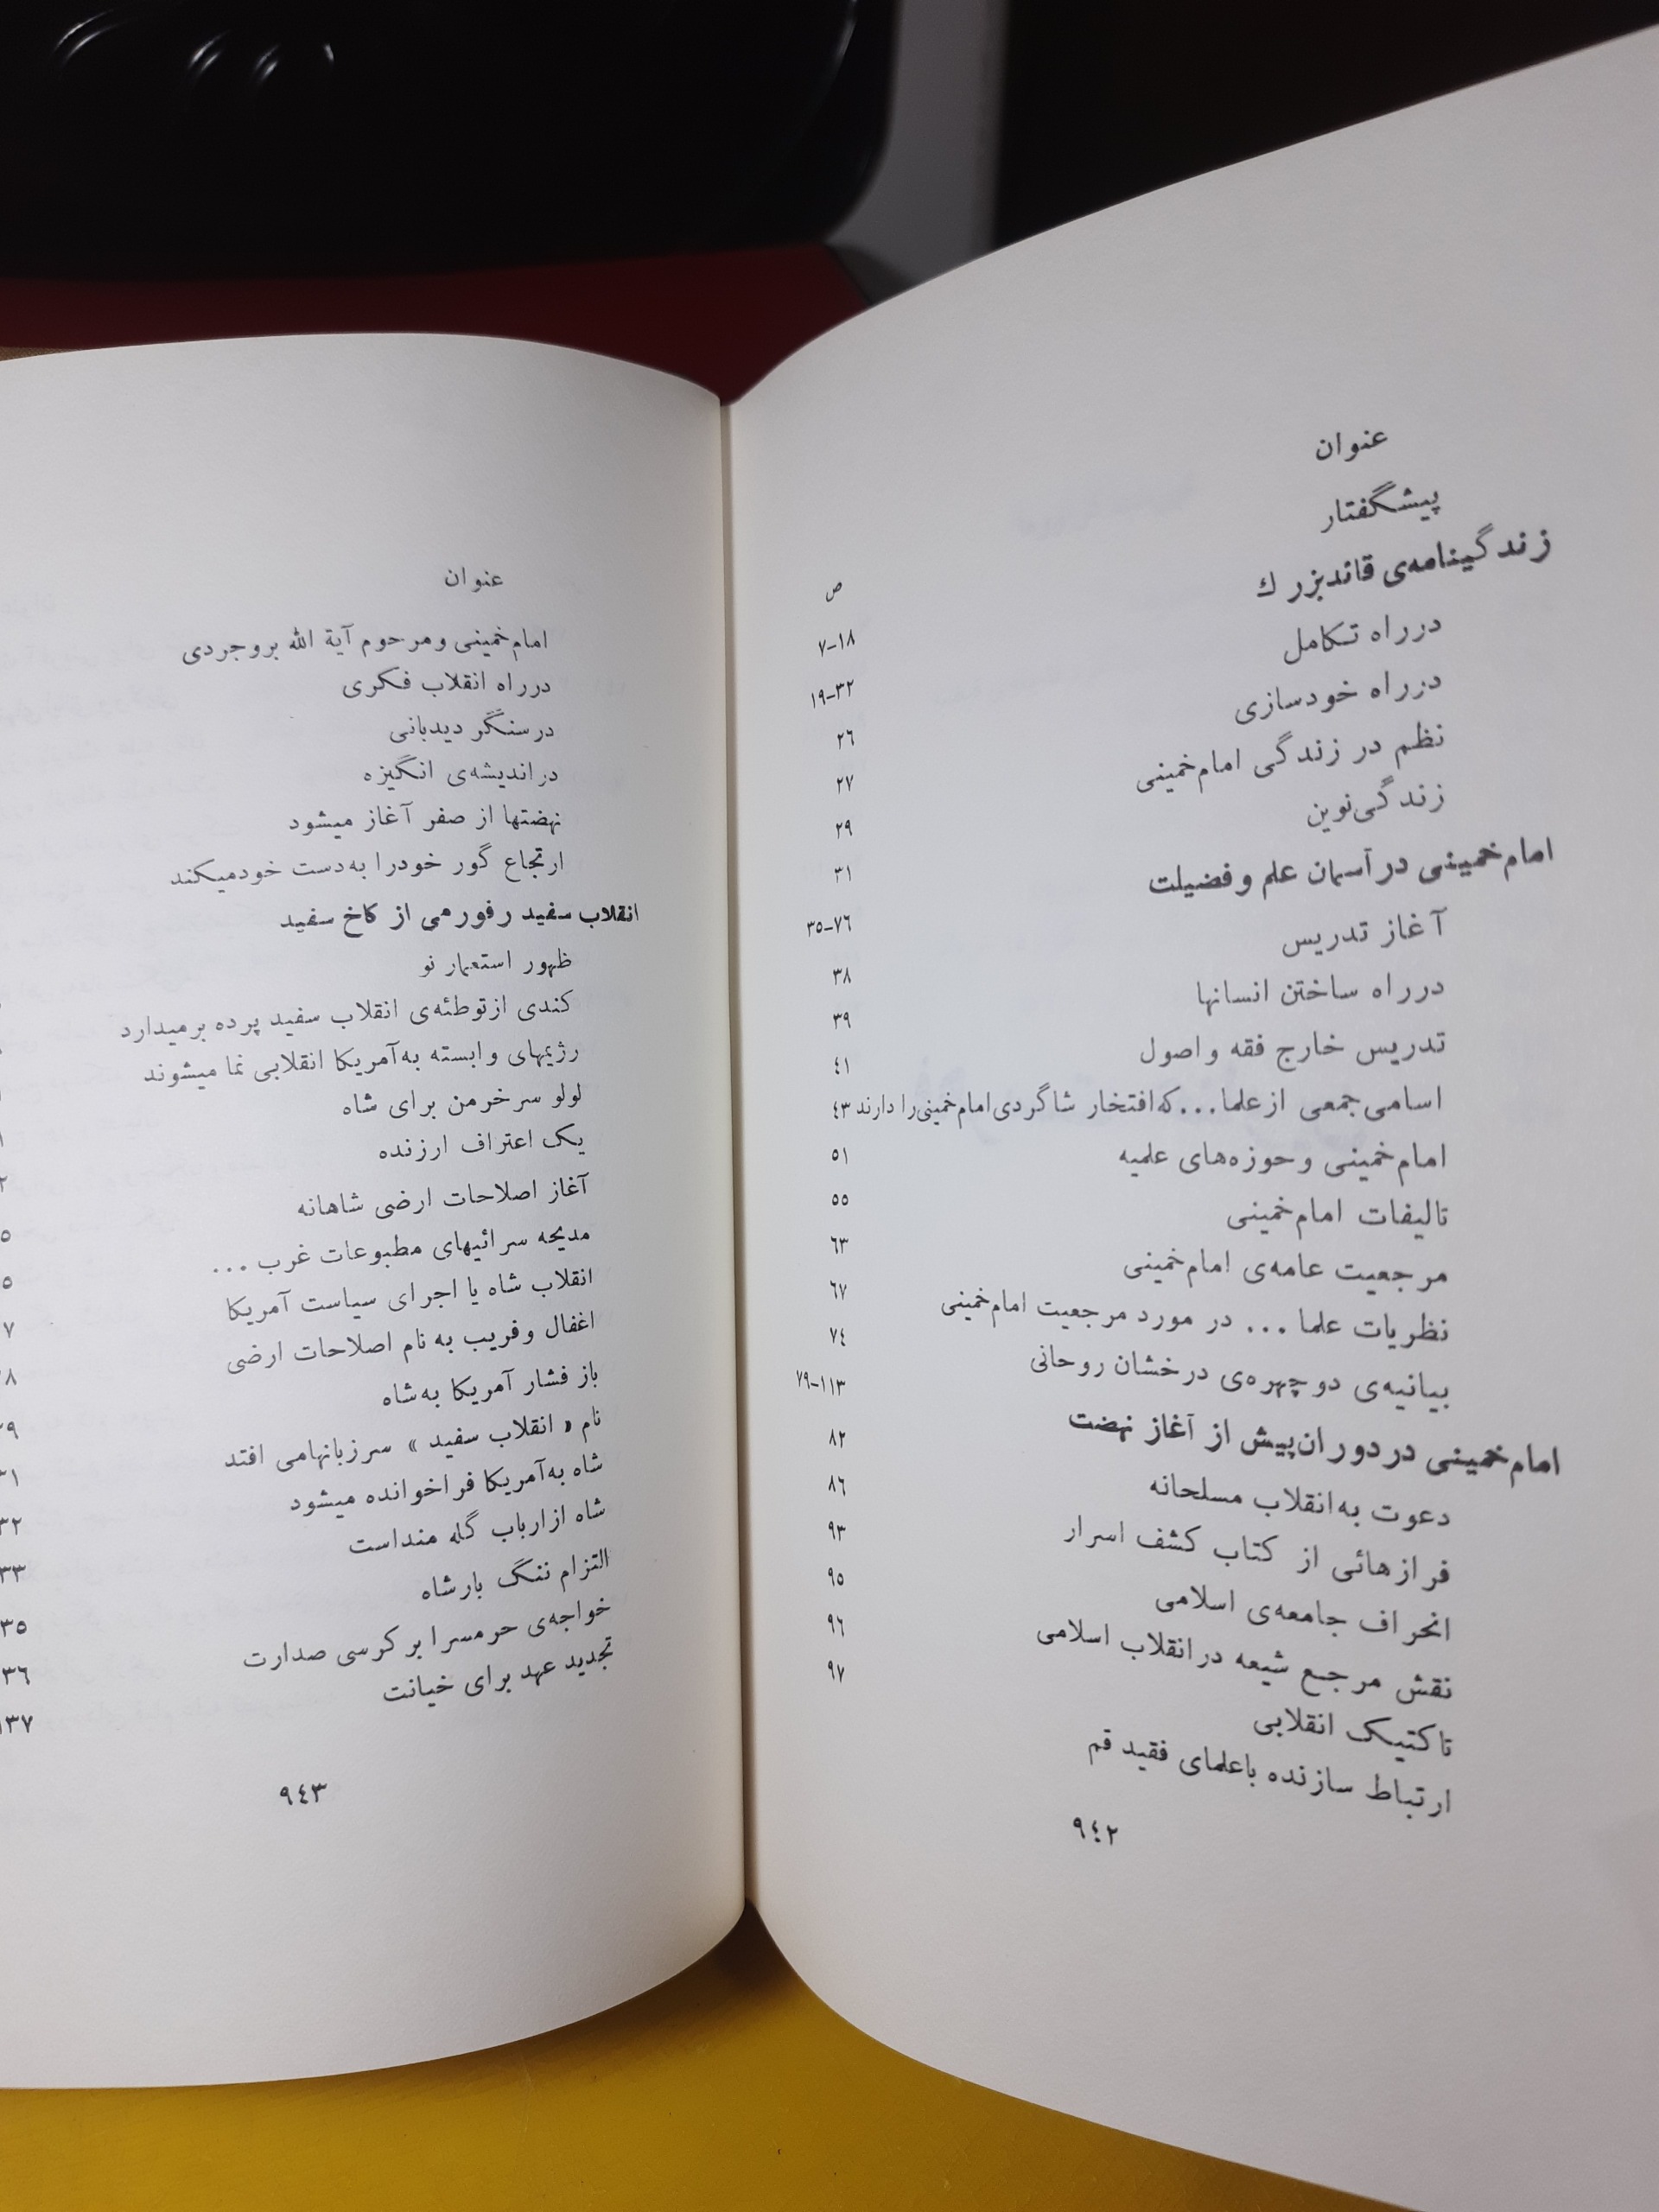 عنوان
ص
پیشگفتار ۷-۱۸
زندگینامه‌ی قائد بزرك ۱۹-۳۲
در راه تکامل ۲۶
در راه خودسازی ۲۷
نظم در زندگی امام خمینی ۲۹
زندگی نوین ۳۱
امام خمینی در آسمان علم و فضیلت ۳۵-۷٦
آغاز تدریس ۳۸
در راه ساختن انسانها ۳۹
تدریس خارج فقه و اصول ٤۱
اسامی جمعی از علما... که افتخار شاگردی امام خمینی را دارند ٤۳
امام خمینی و حوزه‌های علمیه ۵۱
تالیفات امام خمینی ۵۵
مرجعیت عامه‌ی امام خمینی ٦۳
نظریات علما ... در مورد مرجعیت امام خمینی ٦۷
بیانیه‌ی دو چهره‌ی درخشان روحانی ۷٤
امام خمینی در دوران پیش از آغاز نهضت ۷۹-۱۱۳
دعوت به انقلاب مسلحانه ۸۲
فرازهائی از کتاب کشف اسرار ۸٦
انحراف جامعه‌ی اسلامی ۹۳
نقش مرجع شیعه در انقلاب اسلامی ۹۵
تاکتیک انقلابی ۹٦
ارتباط سازنده با علمای فقید قم ۹۷
۹٤۲
عنوان
امام خمینی و مرحوم آیة الله بروجردی
در راه انقلاب فکری
در سنگر دیدبانی
در اندیشه‌ی انگیزه
نهضتها از صفر آغاز میشود
ارتجاع گور خودرا به دست خودمیکند
انقلاب سفید رفورمی از کاخ سفید
ظهور استعمار نو
کندی از توطئه‌ی انقلاب سفید پرده برمیدارد
رژیمهای وابسته به آمریکا انقلابی نما میشوند
لولو سرخرمن برای شاه
یک اعتراف ارزنده
آغاز اصلاحات ارضی شاهانه
مدیحه سرائیهای مطبوعات غرب ...
انقلاب شاه یا اجرای سیاست آمریکا
اغفال و فریب به نام اصلاحات ارضی
باز فشار آمریکا به شاه
نام « انقلاب سفید » سر زبانهامی افتد
شاه به آمریکا فراخوانده میشود
شاه از ارباب گله منداست
التزام ننگ بار شاه
خواجه‌ی حرمسرا بر کرسی صدارت
تجدید عهد برای خیانت
۹٤۳